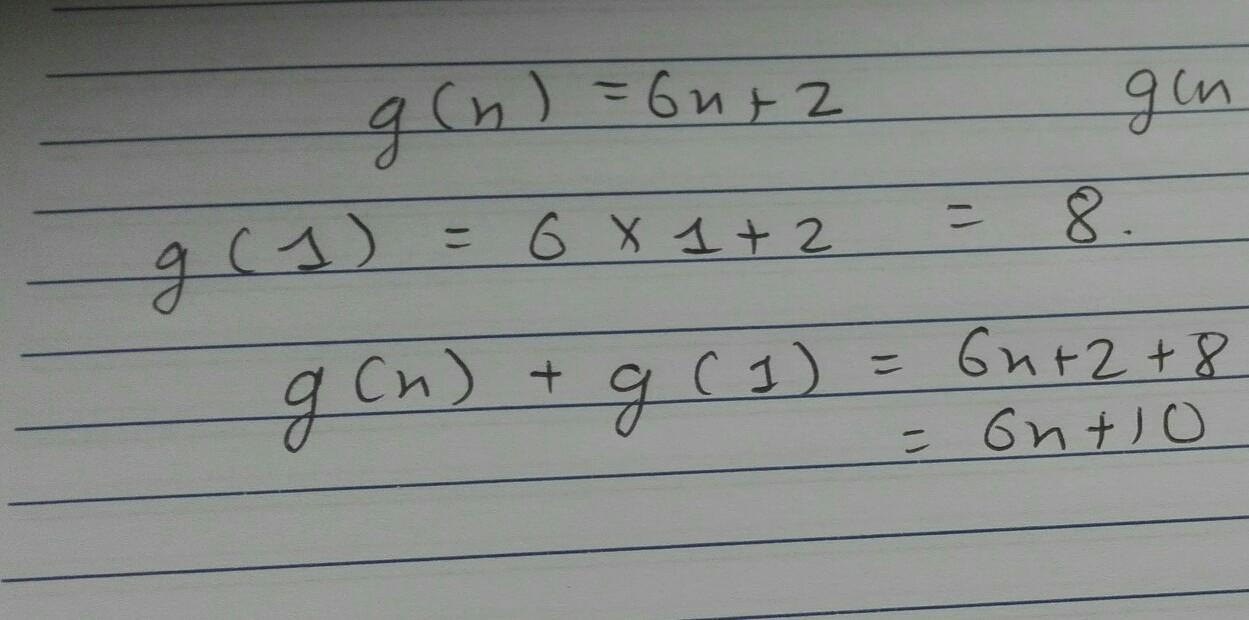 g(n) = 6n + 2 g(n
g(1) = 6 × 1 + 2 = 8.
g(n) + g(1) = 6n + 2 + 8
= 6n + 10